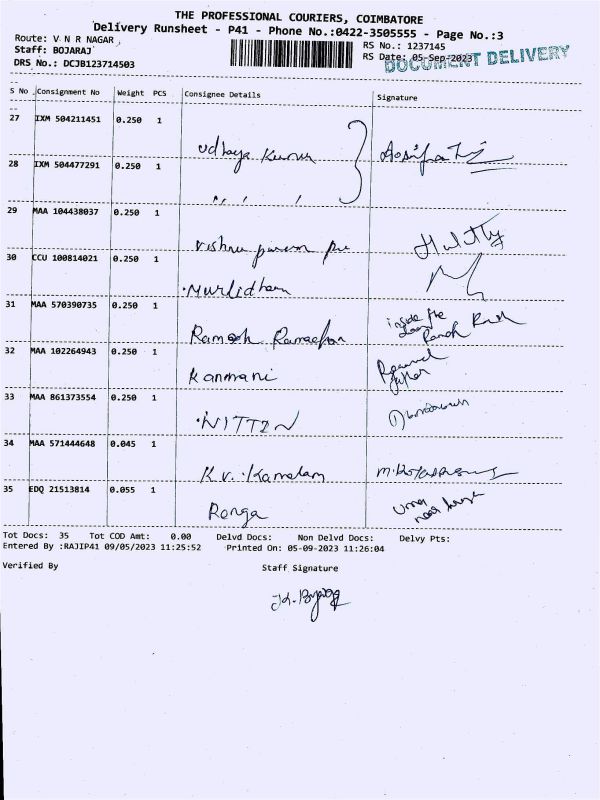 THE PROFESSIONAL COURIERS, COIMBATORE
Delivery Runsheet - P41 - Phone No.:0422-3505555 - Page No.:3
Route: V N R NAGAR
RS No.: 1237145
Staff: BOJARAJ
RS Date: 05-Sep-2023
DOCUMENT DELIVERY
DRS No.: DCJB123714503
S No Consignment No Weight PCS Consignee Details Signature
27 IXM 504211451 0.250 1 Udhaya Kumar
28 IXM 504477291 0.250 1 " " "
29 MAA 104438037 0.250 1 Vishnu
30 CCU 100814021 0.250 1 Murlidharan
31 MAA 570390735 0.250 1 Ramesh inside the door
32 MAA 102264943 0.250 1 Kanmani
33 MAA 861373554 0.250 1 NITTIN
34 MAA 571444648 0.045 1 K.V. Kamalam
35 EDQ 21513814 0.055 1 Renga Uma
Tot Docs: 35 Tot COD Amt: 0.00 Delvd Docs: Non Delvd Docs: Delvy Pts:
Entered By :RAJIP41 09/05/2023 11:25:52 Printed On: 05-09-2023 11:26:04
Verified By Staff Signature